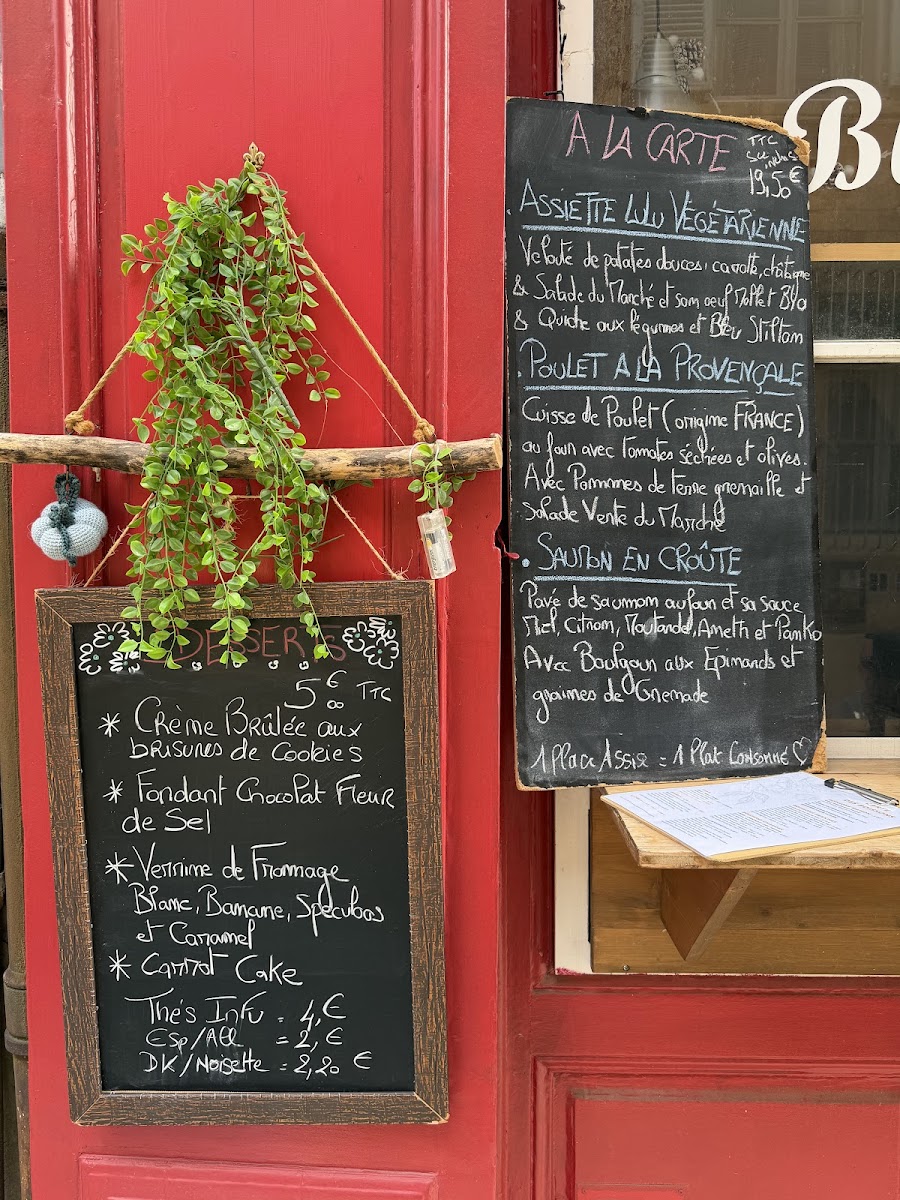 A LA CARTE
TTC
19,50 €
. ASSIETTE LULU VEGÉTARIENNE
Velouté de patates douces, carotte, châtaigne
& Salade du Marché et son oeuf Mollet Bio
& Quiche aux légumes et Bleu Stilton
. POULET A LA PROVENÇALE
Cuisse de Poulet (origine FRANCE)
au four avec Tomates séchées et olives.
Avec Pommes de terre grenaille et
Salade Verte du Marché
. SAUMON EN CROÛTE
Pavé de saumon au four et sa sauce
Miel, Citron, Moutarde, Aneth et Panko
Avec Boulgour aux Epinards et
graines de Grenade
1 Place Assise = 1 Plat Consommé
DESSERTS
5€00 TTC
* Crème Brûlée aux
brisures de cookies
* Fondant Chocolat Fleur
de Sel
* Verrine de Fromage
Blanc, Banane, Speculoos
et Caramel
* Carrot Cake
Thés Infu = 4,€
Esp/All = 2,€
DK/Noisette = 2,20 €